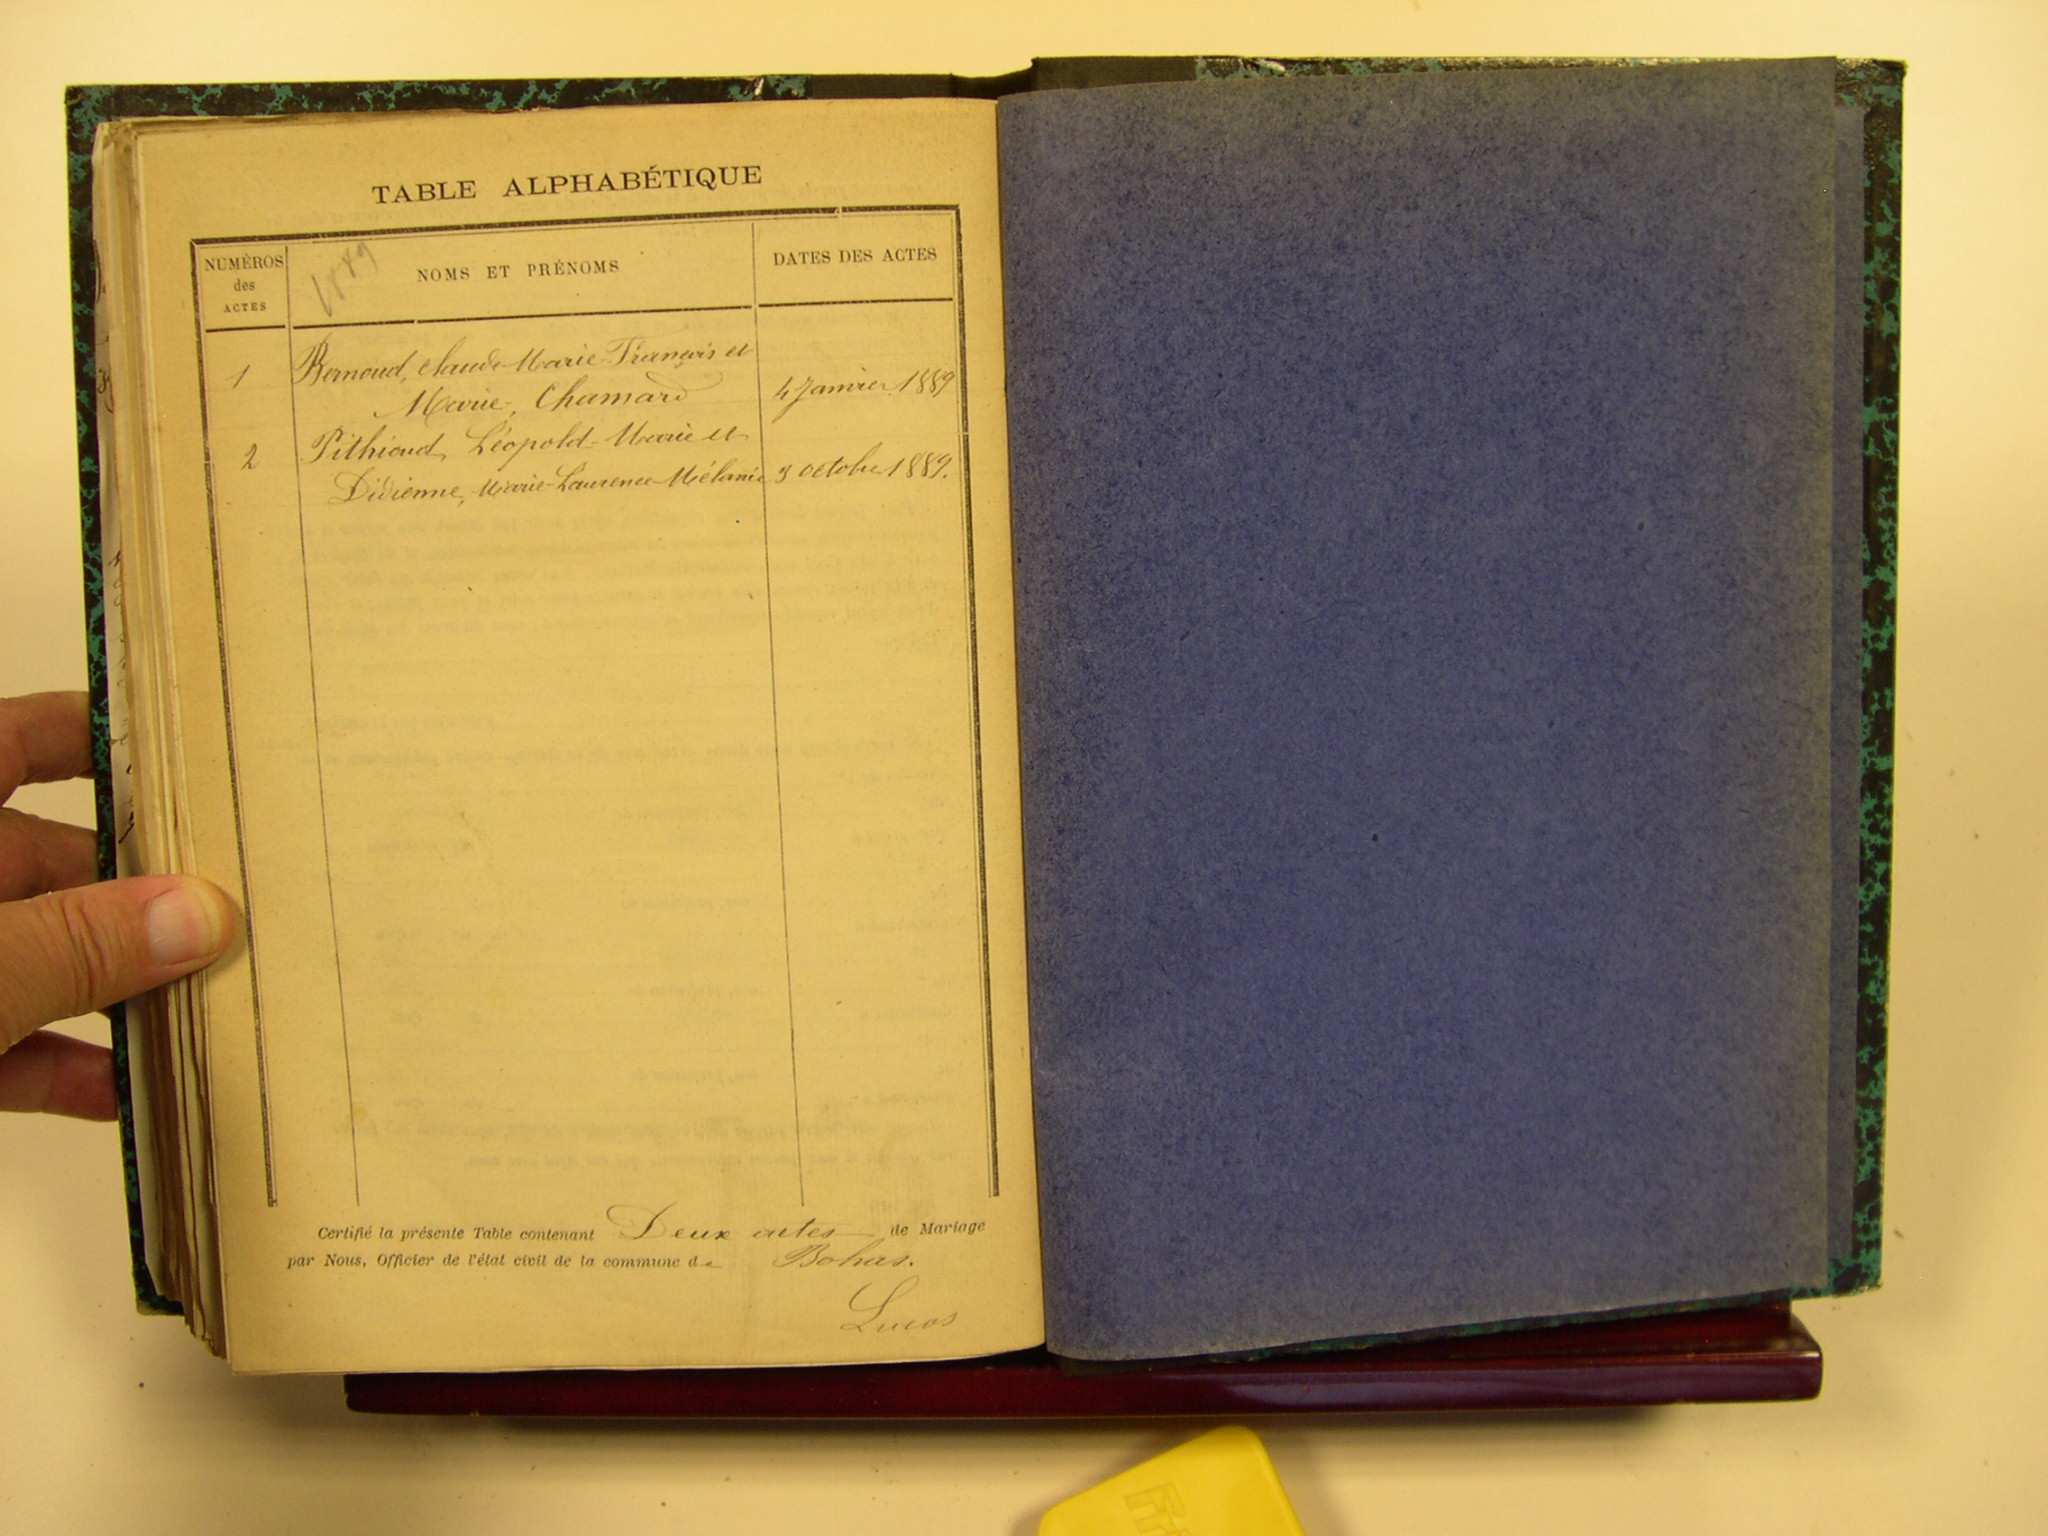 TABLE ALPHABÉTIQUE
NUMÉROS
des
ACTES
1889
NOMS ET PRÉNOMS
DATES DES ACTES
1
Bernoud, Claude-Marie-François et
Marie, Chamard
4 Janvier 1889
2
Pithioud, Léopold-Marie et
Didienne, Marie-Laurence-Mélanie
3 octobre 1889.
Certifié la présente Table contenant Deux actes de Mariage
par Nous, Officier de l'état civil de la commune de Bohas.
Lucos